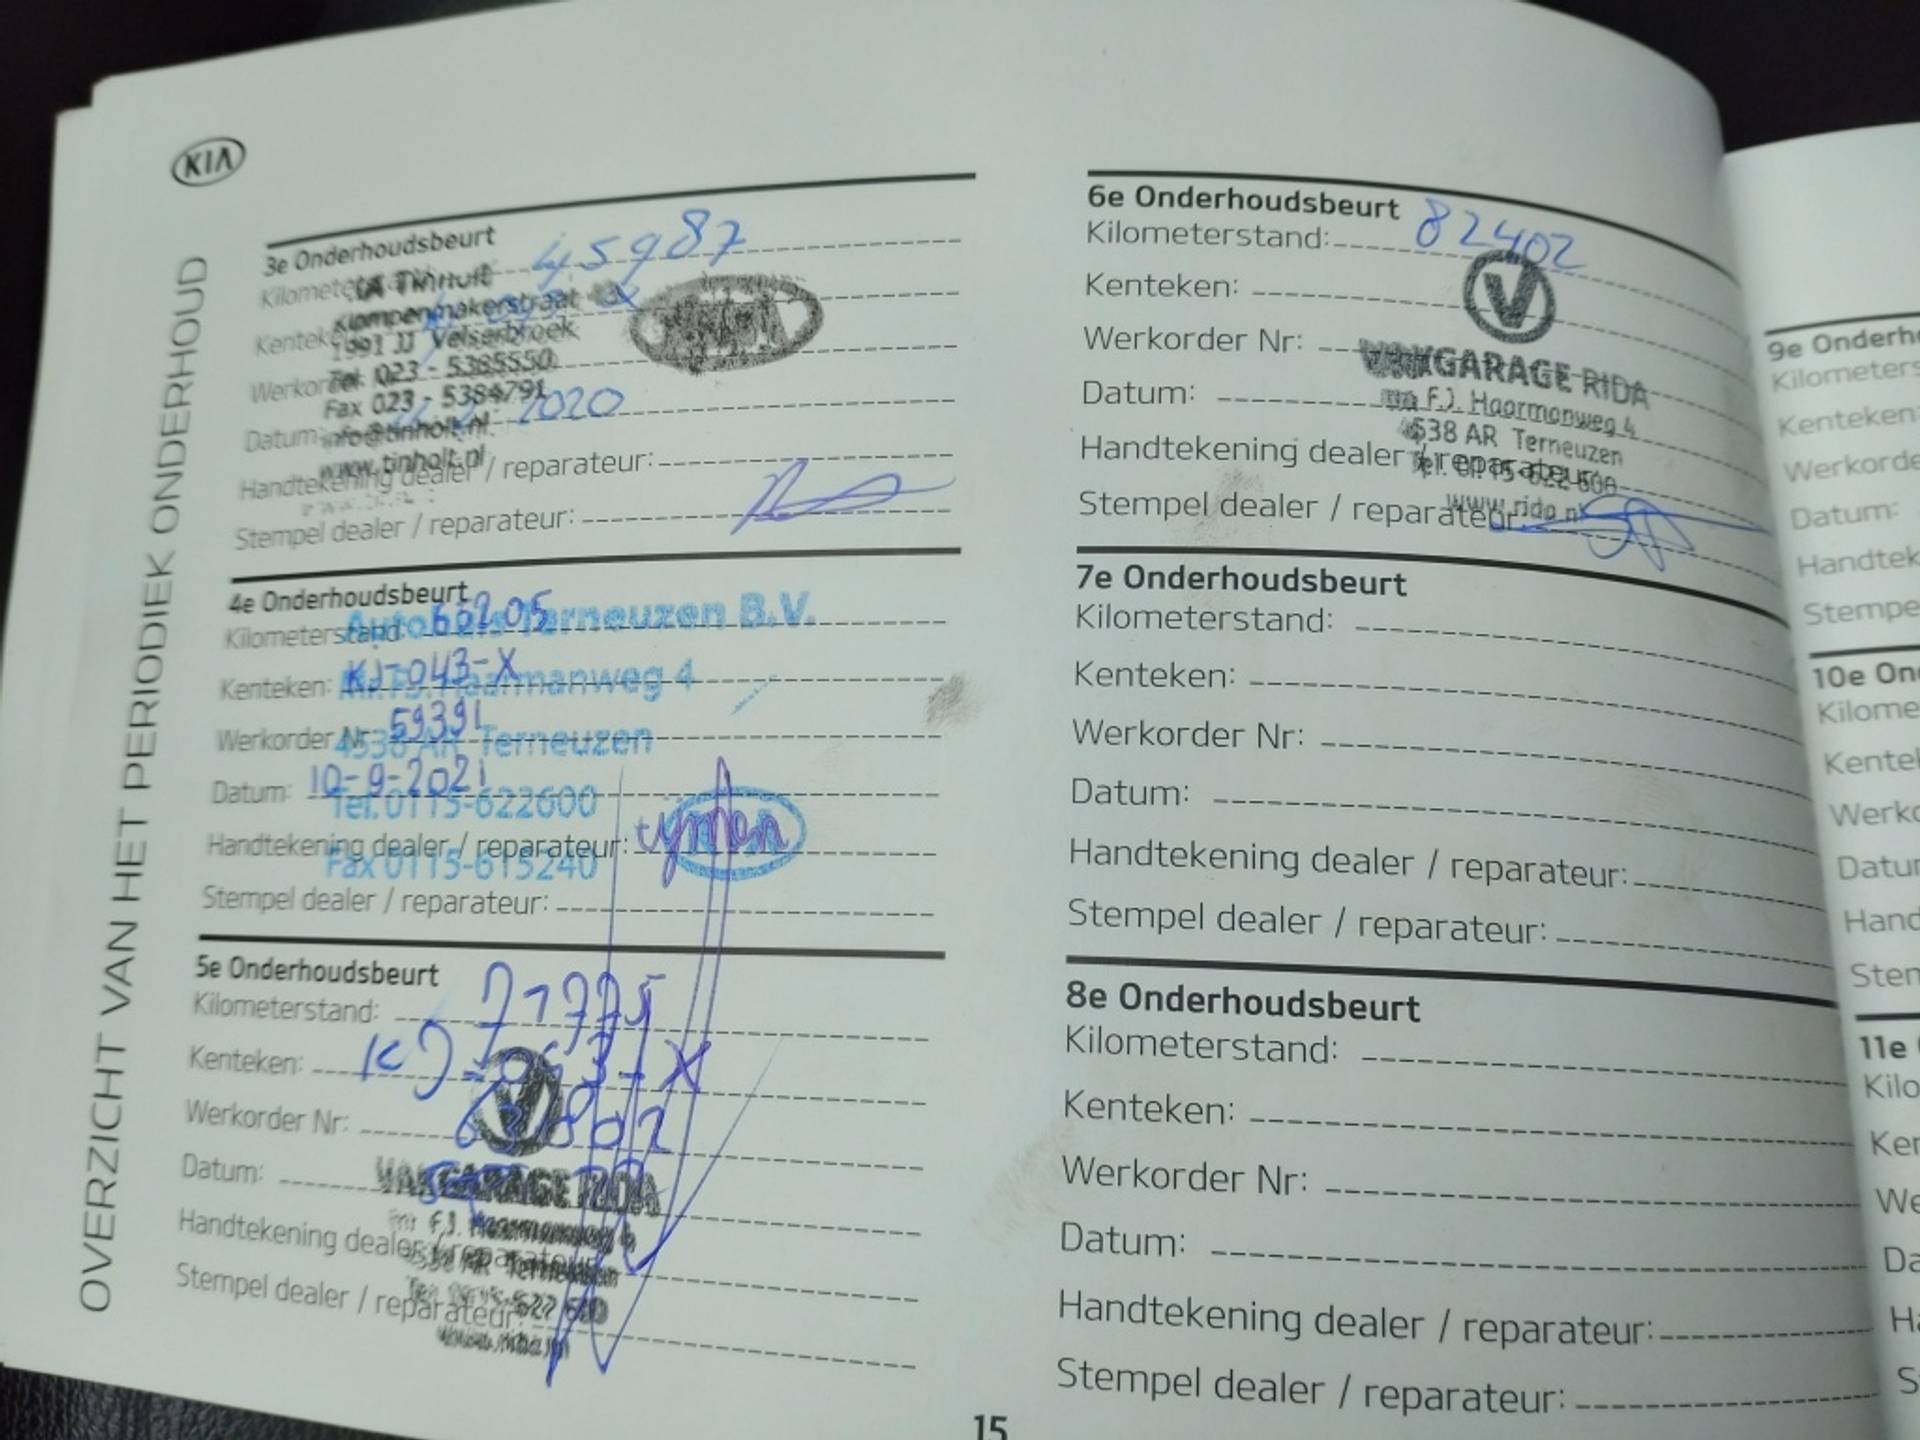 KIA
OVERZICHT VAN HET PERIODIEK ONDERHOUD
3e Onderhoudsbeurt
45987
Tinholt
Klompenmakerstraat
1991 JJ Velserbroek
Tel. 023 - 5385550
Fax 023 - 5384791
Datum: 2020
info@tinholt.nl
www.tinholt.nl
Handtekening dealer / reparateur:
Stempel dealer / reparateur:
4e Onderhoudsbeurt
Kilometerstand: 66205
Terneuzen B.V.
Kenteken: KJ-043-X
Haarmanweg 4
Werkorder Nr: 59391
4538 AR Terneuzen
Datum: 10-9-2021
Tel. 0115-622600
Handtekening dealer / reparateur:
Fax 0115-615240
Stempel dealer / reparateur:
5e Onderhoudsbeurt
Kilometerstand: 71775
Kenteken: X
Werkorder Nr:
Datum:
VAKGARAGE RIDA
Handtekening dealer / reparateur:
Stempel dealer / reparateur:
6e Onderhoudsbeurt
Kilometerstand: 82402
Kenteken:
V
Werkorder Nr:
VAKGARAGE RIDA
Datum:
F.J. Haarmanweg 4
4538 AR Terneuzen
Handtekening dealer / reparateur:
Tel. 0115-622 600
www.rida.nl
Stempel dealer / reparateur:
7e Onderhoudsbeurt
Kilometerstand:
Kenteken:
Werkorder Nr:
Datum:
Handtekening dealer / reparateur:
Stempel dealer / reparateur:
8e Onderhoudsbeurt
Kilometerstand:
Kenteken:
Werkorder Nr:
Datum:
Handtekening dealer / reparateur:
Stempel dealer / reparateur:
15
9e Onderh
Kilometers
Kenteken:
Werkorde
Datum:
Handtek
Stempe
10e On
Kilome
Kente
Werk
Datu
Hand
Stem
11e
Kilo
Ken
We
Da
Ha
S